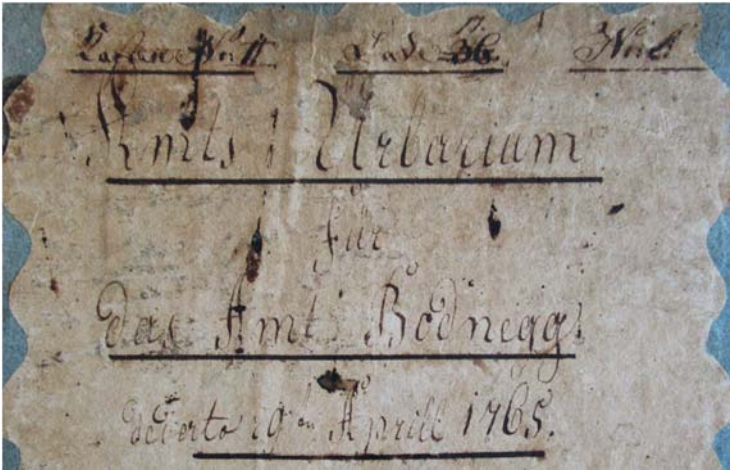 Kasten No. Lade 36. No.
Amts Urbarium
für
das Amt Bodnegg.
de dato 29ten Aprill 1765.